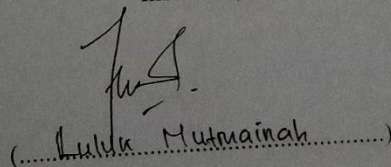 (..... Luluk Mutmainah .....)